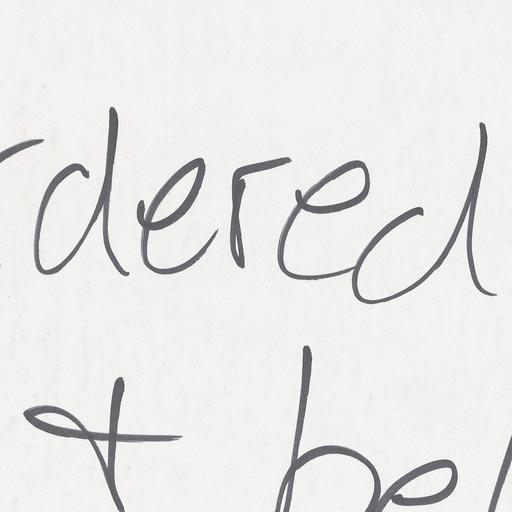 rdered
t be